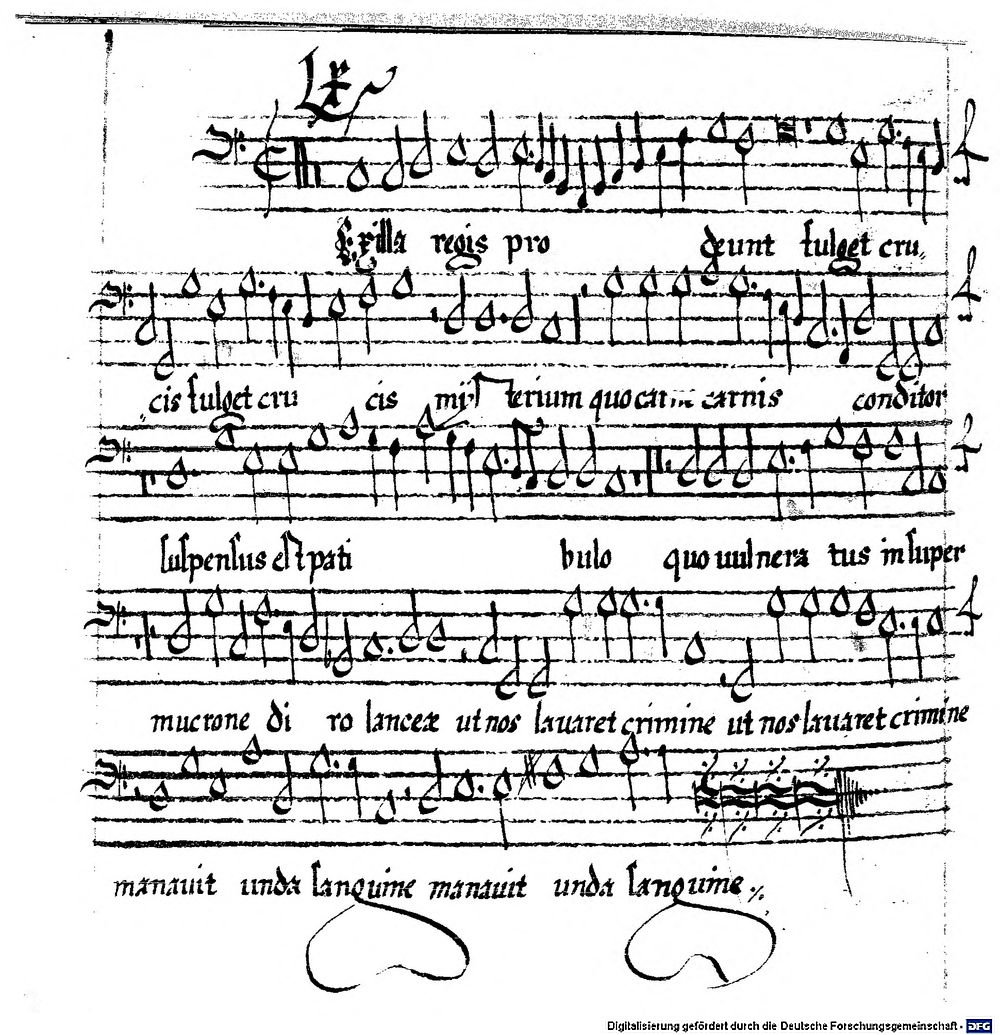 Lx
Exilla regis pro deunt fulget cru„
cis fulget cru cis misterium quo carnis conditor
suspensus est pati bulo quo uulnera tus insuper
mucrone di ro lanceæ ut nos lauaret crimine ut nos lauaret crimine
manauit unda sanguine manauit unda sanguine
Digitalisierung gefördert durch die Deutsche Forschungsgemeinschaft - DFG